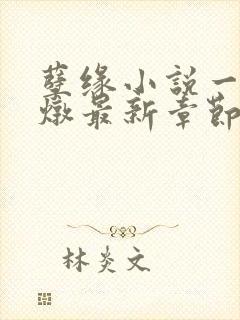 孽缘小說一
燉最新章節
林炎文